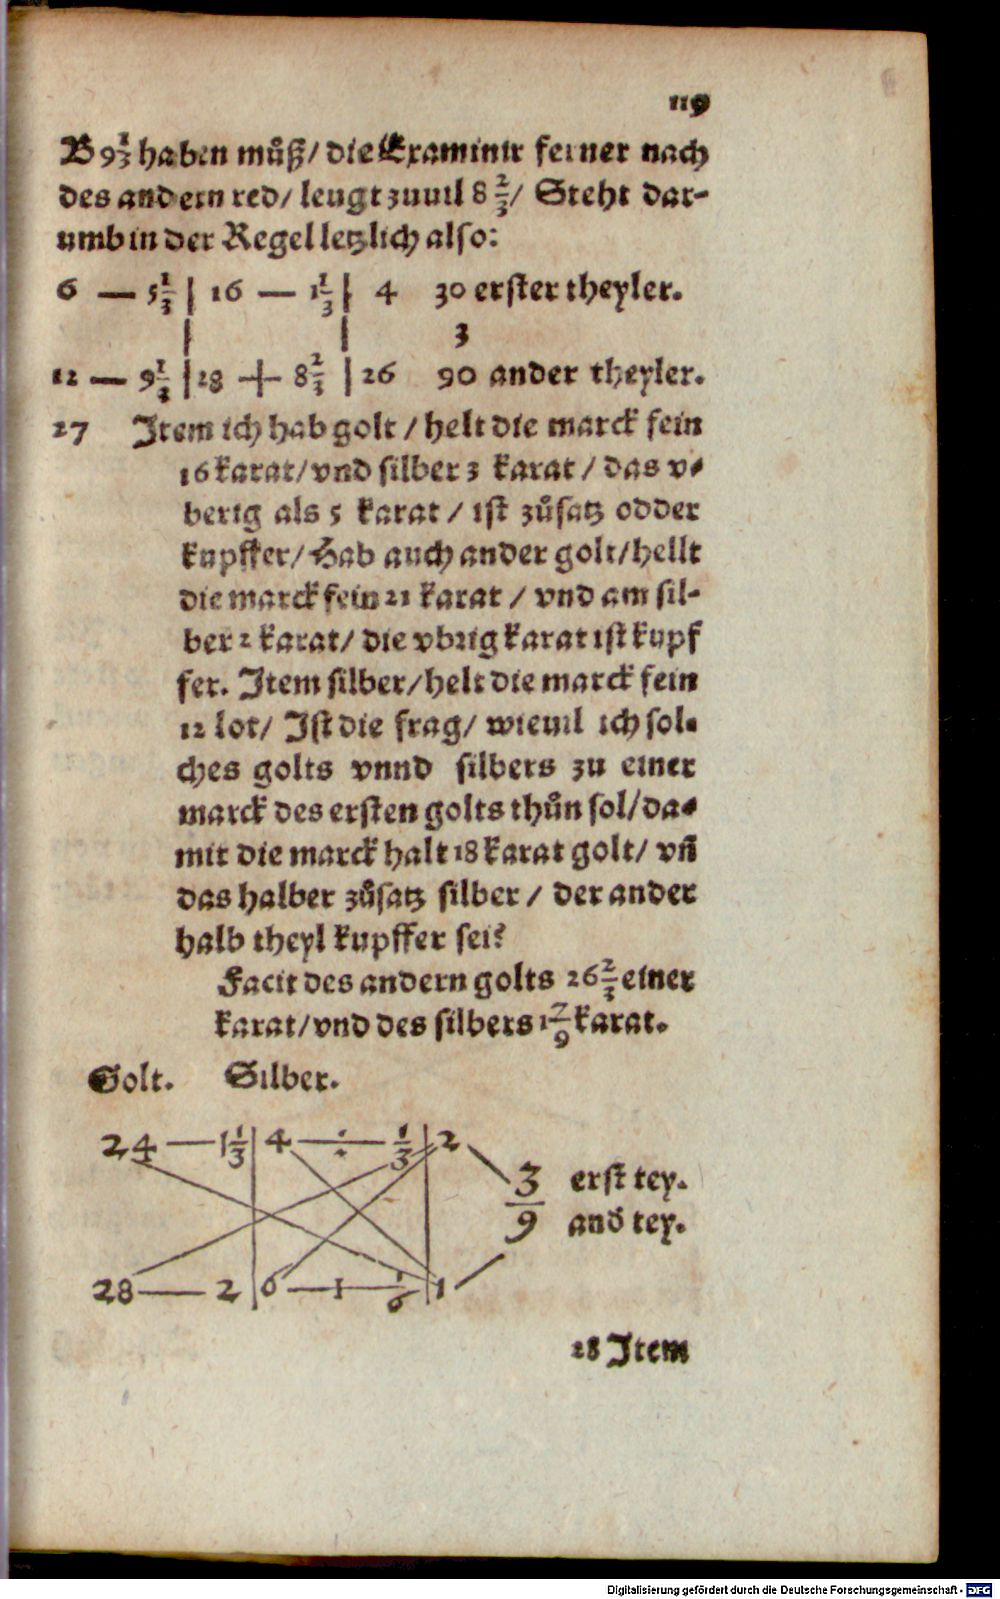 119
B 9⅓ haben müß/ die Examinir ferner nach
des andern red/ leugt zuuil 8⅔/ Steht dar-
umb in der Regel letzlich also:
6 — 5⅓ | 16 — 1⅓ | 4 30 erster theyler.
| | 3
12 — 9⅓ | 28 + 8⅔ | 26 90 ander theyler.
27 Item ich hab golt / helt die marck fein
16 karat/ vnd silber 3 karat / das v-
berig als 5 karat / ist zůsatz odder
kupffer/ Hab auch ander golt/ hellt
die marck fein 21 karat / vnd am sil-
ber 2 karat/ die vbrig karat ist kupf
fer. Item silber/ helt die marck fein
12 lot/ Ist die frag/ wieuil ich sol-
ches golts vnnd silbers zu einer
marck des ersten golts thůn sol/ da-
mit die marck halt 18 karat golt/ vn̄
das halber zůsatz silber / der ander
halb theyl kupffer sei?
Facit des andern golts 26⅔ einer
karat/ vnd des silbers 1 7/9 karat.
Golt. Silber.
24 — 1⅓ | 4 — ÷ — ⅓ | 2
3 erst tey.
9 and̄ tey.
28 — 2 | 6 — 1 — 1/6 | 1
28 Item
Digitalisierung gefördert durch die Deutsche Forschungsgemeinschaft - DFG